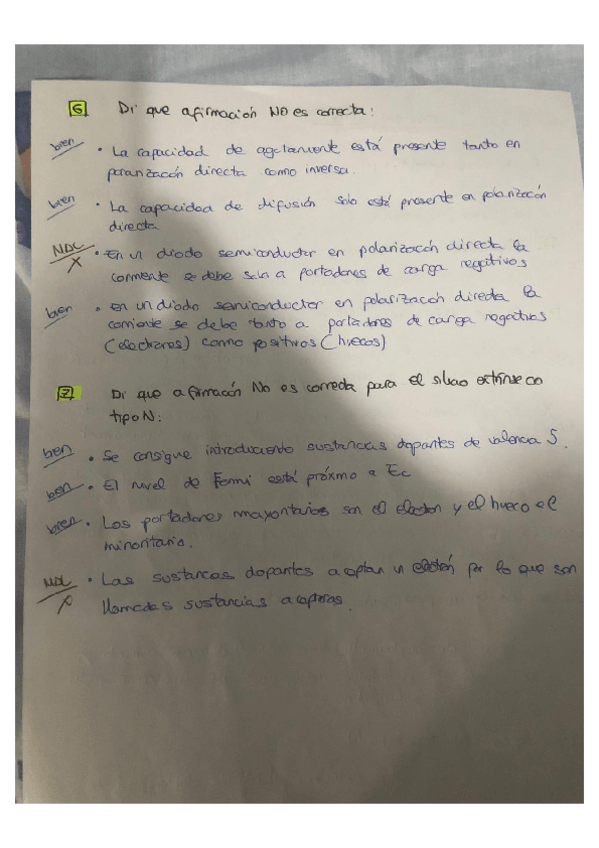 6 Di que afirmación NO es correcta:
bien • La capacidad de agotamiento está presente tanto en
polarización directa como inversa.
bien • La capacidad de difusión solo está presente en polarización
directa
MAL X • En un diodo semiconductor en polarización directa la
corriente se debe solo a portadores de carga negativos
bien • en un diodo semiconductor en polarización directa la
corriente se debe tanto a portadores de carga negativos
(electrones) como positivos (huecos)
7 Di que afirmación No es correcta para el silicio extrínseco
tipo N:
bien • Se consigue introduciendo sustancias dopantes de valencia 5.
bien • El nivel de Fermi está próximo a Ec
bien • Los portadores mayoritarios son el electron y el hueco el
minoritario.
MAL X • Las sustancias dopantes aceptan un electrón por lo que son
llamadas sustancias aceptoras.